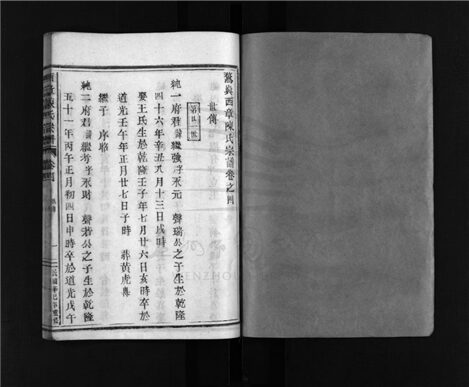 鰲嶴西章陳氏宗譜卷之四
世傳
第廿二派
純一府君 繼強 字永元 聲瑞公之子生於乾隆
四十六年辛丑八月十三日戌時
娶王氏生於乾隆壬子年七月廿六日亥時卒於
道光壬午年正月廿七日子時 葬黃虎
繼子 序聯
純二府君 繼 字永財 聲若公之子生於乾隆
五十一年丙午正月初四日申時卒於道光戊午